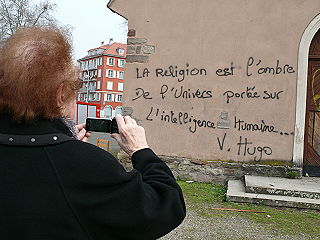 LA Religion est l'ombre
De l'Univers portée sur
L'intelligence Humaine...
V. Hugo